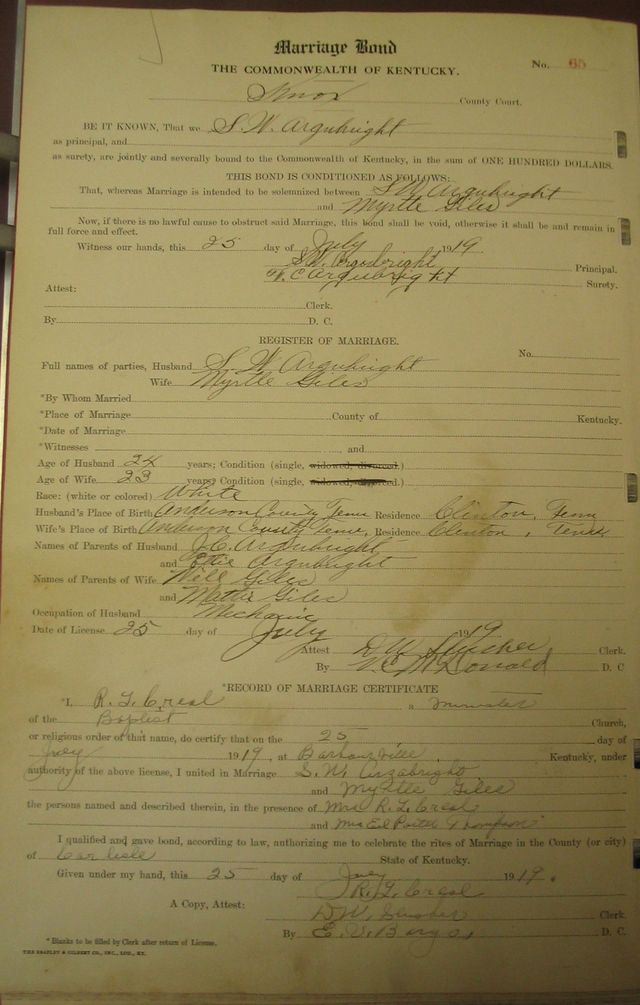 Marriage Bond
THE COMMONWEALTH OF KENTUCKY.
No. 65
Knox County Court.
BE IT KNOWN, That we S. W. Arguhright
as principal, and
as surety, are jointly and severally bound to the Commonwealth of Kentucky, in the sum of ONE HUNDRED DOLLARS.
THIS BOND IS CONDITIONED AS FOLLOWS:
That, whereas Marriage is intended to be solemnized between S W Arguhright
and Myrtle Giles
Now, if there is no lawful cause to obstruct said Marriage, this bond shall be void, otherwise it shall be and remain in
full force and effect.
Witness our hands, this 25 day of July 1919
S. W. Principal.
W. C Surety.
Attest:
Clerk.
By D. C.
REGISTER OF MARRIAGE.
No.
Full names of parties, Husband S. W Arguhright
Wife Myrtle Giles
*By Whom Married
*Place of Marriage County of Kentucky.
*Date of Marriage
*Witnesses and
Age of Husband 24 years; Condition (single, widowed, divorced.)
Age of Wife 23 years; Condition (single, widowed, divorced.)
Race: (white or colored) White
Husband's Place of Birth Anderson County Tenn Residence Clinton, Tenn
Wife's Place of Birth Anderson County Tenn, Residence Clinton, Tenn
Names of Parents of Husband J. C. Arguhright
and Ottie Arguhright
Names of Parents of Wife Will Giles
and Mattie Giles
Occupation of Husband Mechanic
Date of License 25 day of July 1919
Attest D W Slusher Clerk.
By McDonald D. C
*RECORD OF MARRIAGE CERTIFICATE
*I, R. L. Creal a Minister
of the Baptist Church,
or religious order of that name, do certify that on the 25 day of
July 1919, at Barbourville, Kentucky, under
authority of the above license, I united in Marriage S. W. Arzabright
and Myrtle Giles
the persons named and described therein, in the presence of Mrs R. L. Creal
and Mrs Ed Thompson
I qualified and gave bond, according to law, authorizing me to celebrate the rites of Marriage in the County (or city)
of Carlisle State of Kentucky.
Given under my hand, this 25 day of July 1919.
R. L. Creal
A Copy, Attest: D. W. Slusher Clerk.
By E. V. Bargo, D. C.
* Blanks to be filled by Clerk after return of License.
THE BRADLEY & GILBERT CO., INC., LOU., KY.